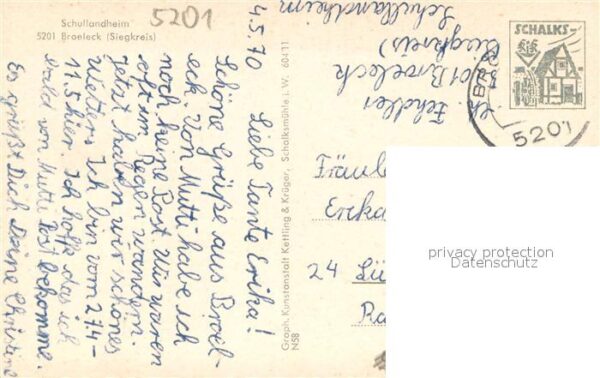 Schullandheim
5201 Broeleck (Siegkreis)
5201
4.5.70
Liebe Tante Erika!
Schöne Grüße aus Broel-
eck. Von Mutti habe ich
noch keine Post. Wir waren
oft im Regen wandern.
Jetzt haben wir schönes
Wetter. Ich bin vom 27.4-
11.5 hier. Ich hoffe das ich
bald von Mutti Post bekomme.
Es grüßt Dich Deine Christine
Graph. Kunstanstalt Kettling & Krüger, Schalksmühle i. W. 60411
N58
5201 Broeleck
(Siegkreis)
Schullandheim
SCHALKS-
5201
Fräule
Erika
24 Lü
privacy protection
Datenschutz